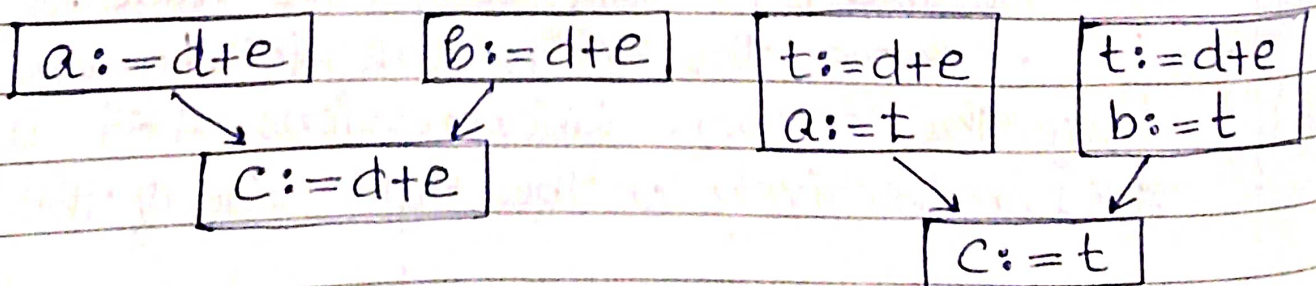 a:=d+e
b:=d+e
c:=d+e
t:=d+e
a:=t
t:=d+e
b:=t
c:=t